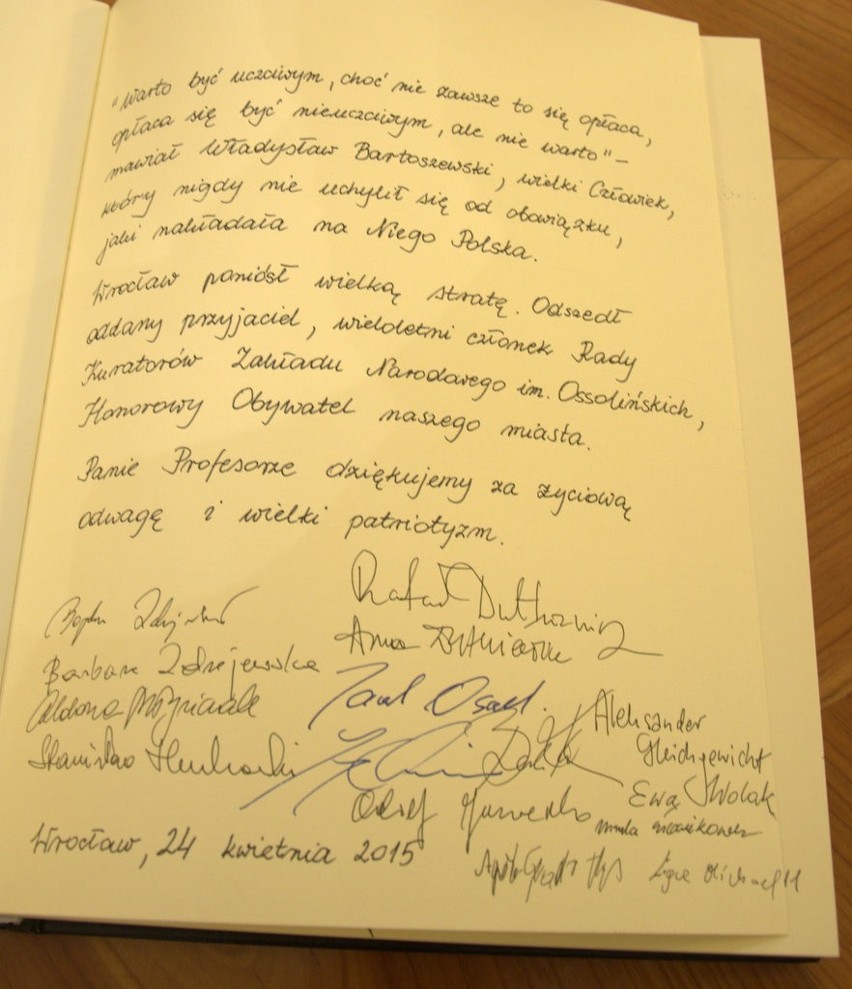 "Warto być uczciwym, choć nie zawsze to się opłaca,
opłaca się być nieuczciwym, ale nie warto" –
mawiał Władysław Bartoszewski, wielki Człowiek,
który nigdy nie uchylił się od obowiązku,
jaki nakładała na Niego Polska.
Wrocław poniósł wielką stratę. Odszedł
oddany przyjaciel, wieloletni członek Rady
Kuratorów Zakładu Narodowego im. Ossolińskich,
Honorowy Obywatel naszego miasta.
Panie Profesorze dziękujemy za życiową
odwagę i wielki patriotyzm.
Rafał Dutkiewicz
Anna
Barbara Zdrojewska
Aldona
Stanisław Huskowski
Aleksander
Gleichgewicht
Ewa Wolak
Wrocław, 24 kwietnia 2015